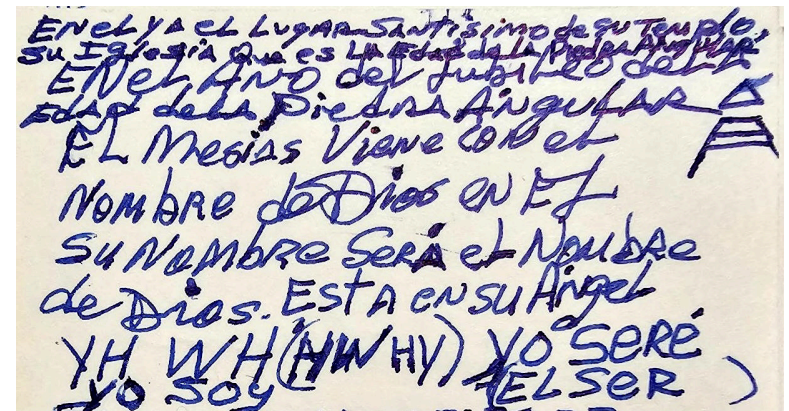 EN el YA el LugAR SANtísimo de su Templo,
su Iglesia que es LA EDAD de LA Piedra ANgulAR
EN el Año del Jubileo de LA
EDAD de LA PiedRA ANgulAR
EL Mesías Viene CON el
NOMbRE de Dios eN EL
Su NOMbRE SeRÁ el NOMbRe
de Dios. EstA eN su Ángel
YH WH (HWHY) YO SERÉ
YO SOY (EL SER)